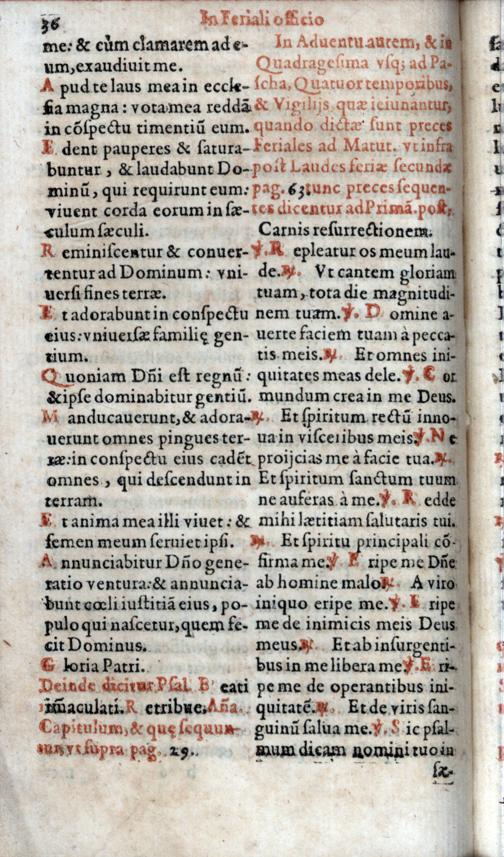 36
In Feriali officio
me: & cùm clamarem ad e-
um, exaudiuit me.
A pud te laus mea in eccle-
sia magna: vota mea reddā
in cōspectu timentiū eum.
E dent pauperes & satura-
buntur, & laudabunt Do-
minū, qui requirunt eum:
viuent corda eorum in sæ-
culum sæculi.
R eminiscentur & conuer-
tentur ad Dominum: vni-
uersi fines terræ.
E t adorabunt in conspectu
eius: vniuersæ familię gen-
tium.
Q uoniam Dñi est regnū:
& ipse dominabitur gentiū.
M anducauerunt, & adora-
uerunt omnes pingues ter-
ræ: in conspectu eius cadēt
omnes, qui descendunt in
terram.
E t anima mea illi viuet: &
semen meum seruiet ipsi.
A nnunciabitur Dño gene-
ratio ventura: & annuncia-
bunt cœli iustitiā eius, po-
pulo qui nascetur, quem fe-
cit Dominus.
G loria Patri.
Deinde dicitur Psal. B eati
immaculati. R etribue. Aña.
Capitulum, & quę sequun-
tur, vt supra pag. 29.
In Aduentu autem, & in
Quadragesima vsq; ad Pa-
scha, Quatuor temporibus,
& Vigilijs quæ ieiunantur,
quando dictæ sunt preces
Feriales ad Matut. vt infra
post Laudes feriæ secundæ
pag. 63. tunc preces sequen-
tes dicentur ad Primā. post,
Carnis resurrectionem.
℣. R epleatur os meum lau-
de. ℟. Vt cantem gloriam
tuam, tota die magnitudi-
nem tuam. ℣. D omine a-
uerte faciem tuam à pecca-
tis meis. ℟. Et omnes ini-
quitates meas dele. ℣. C or
mundum crea in me Deus.
℟. Et spiritum rectū inno-
ua in visceribus meis. ℣. N e
proijcias me à facie tua. ℟.
Et spiritum sanctum tuum
ne auferas à me. ℣. R edde
mihi lætitiam salutaris tui.
℟. Et spiritu principali cō-
firma me. ℣. E ripe me Dñe
ab homine malo ℟. A viro
iniquo eripe me. ℣. E ripe
me de inimicis meis Deus
meus. ℟. Et ab insurgenti-
bus in me libera me ℣. E ri-
pe me de operantibus ini-
quitatē. ℟. Et de viris san-
guinū salua me. ℣. S ic psal-
mum dicam nomini tuo in
sæ-